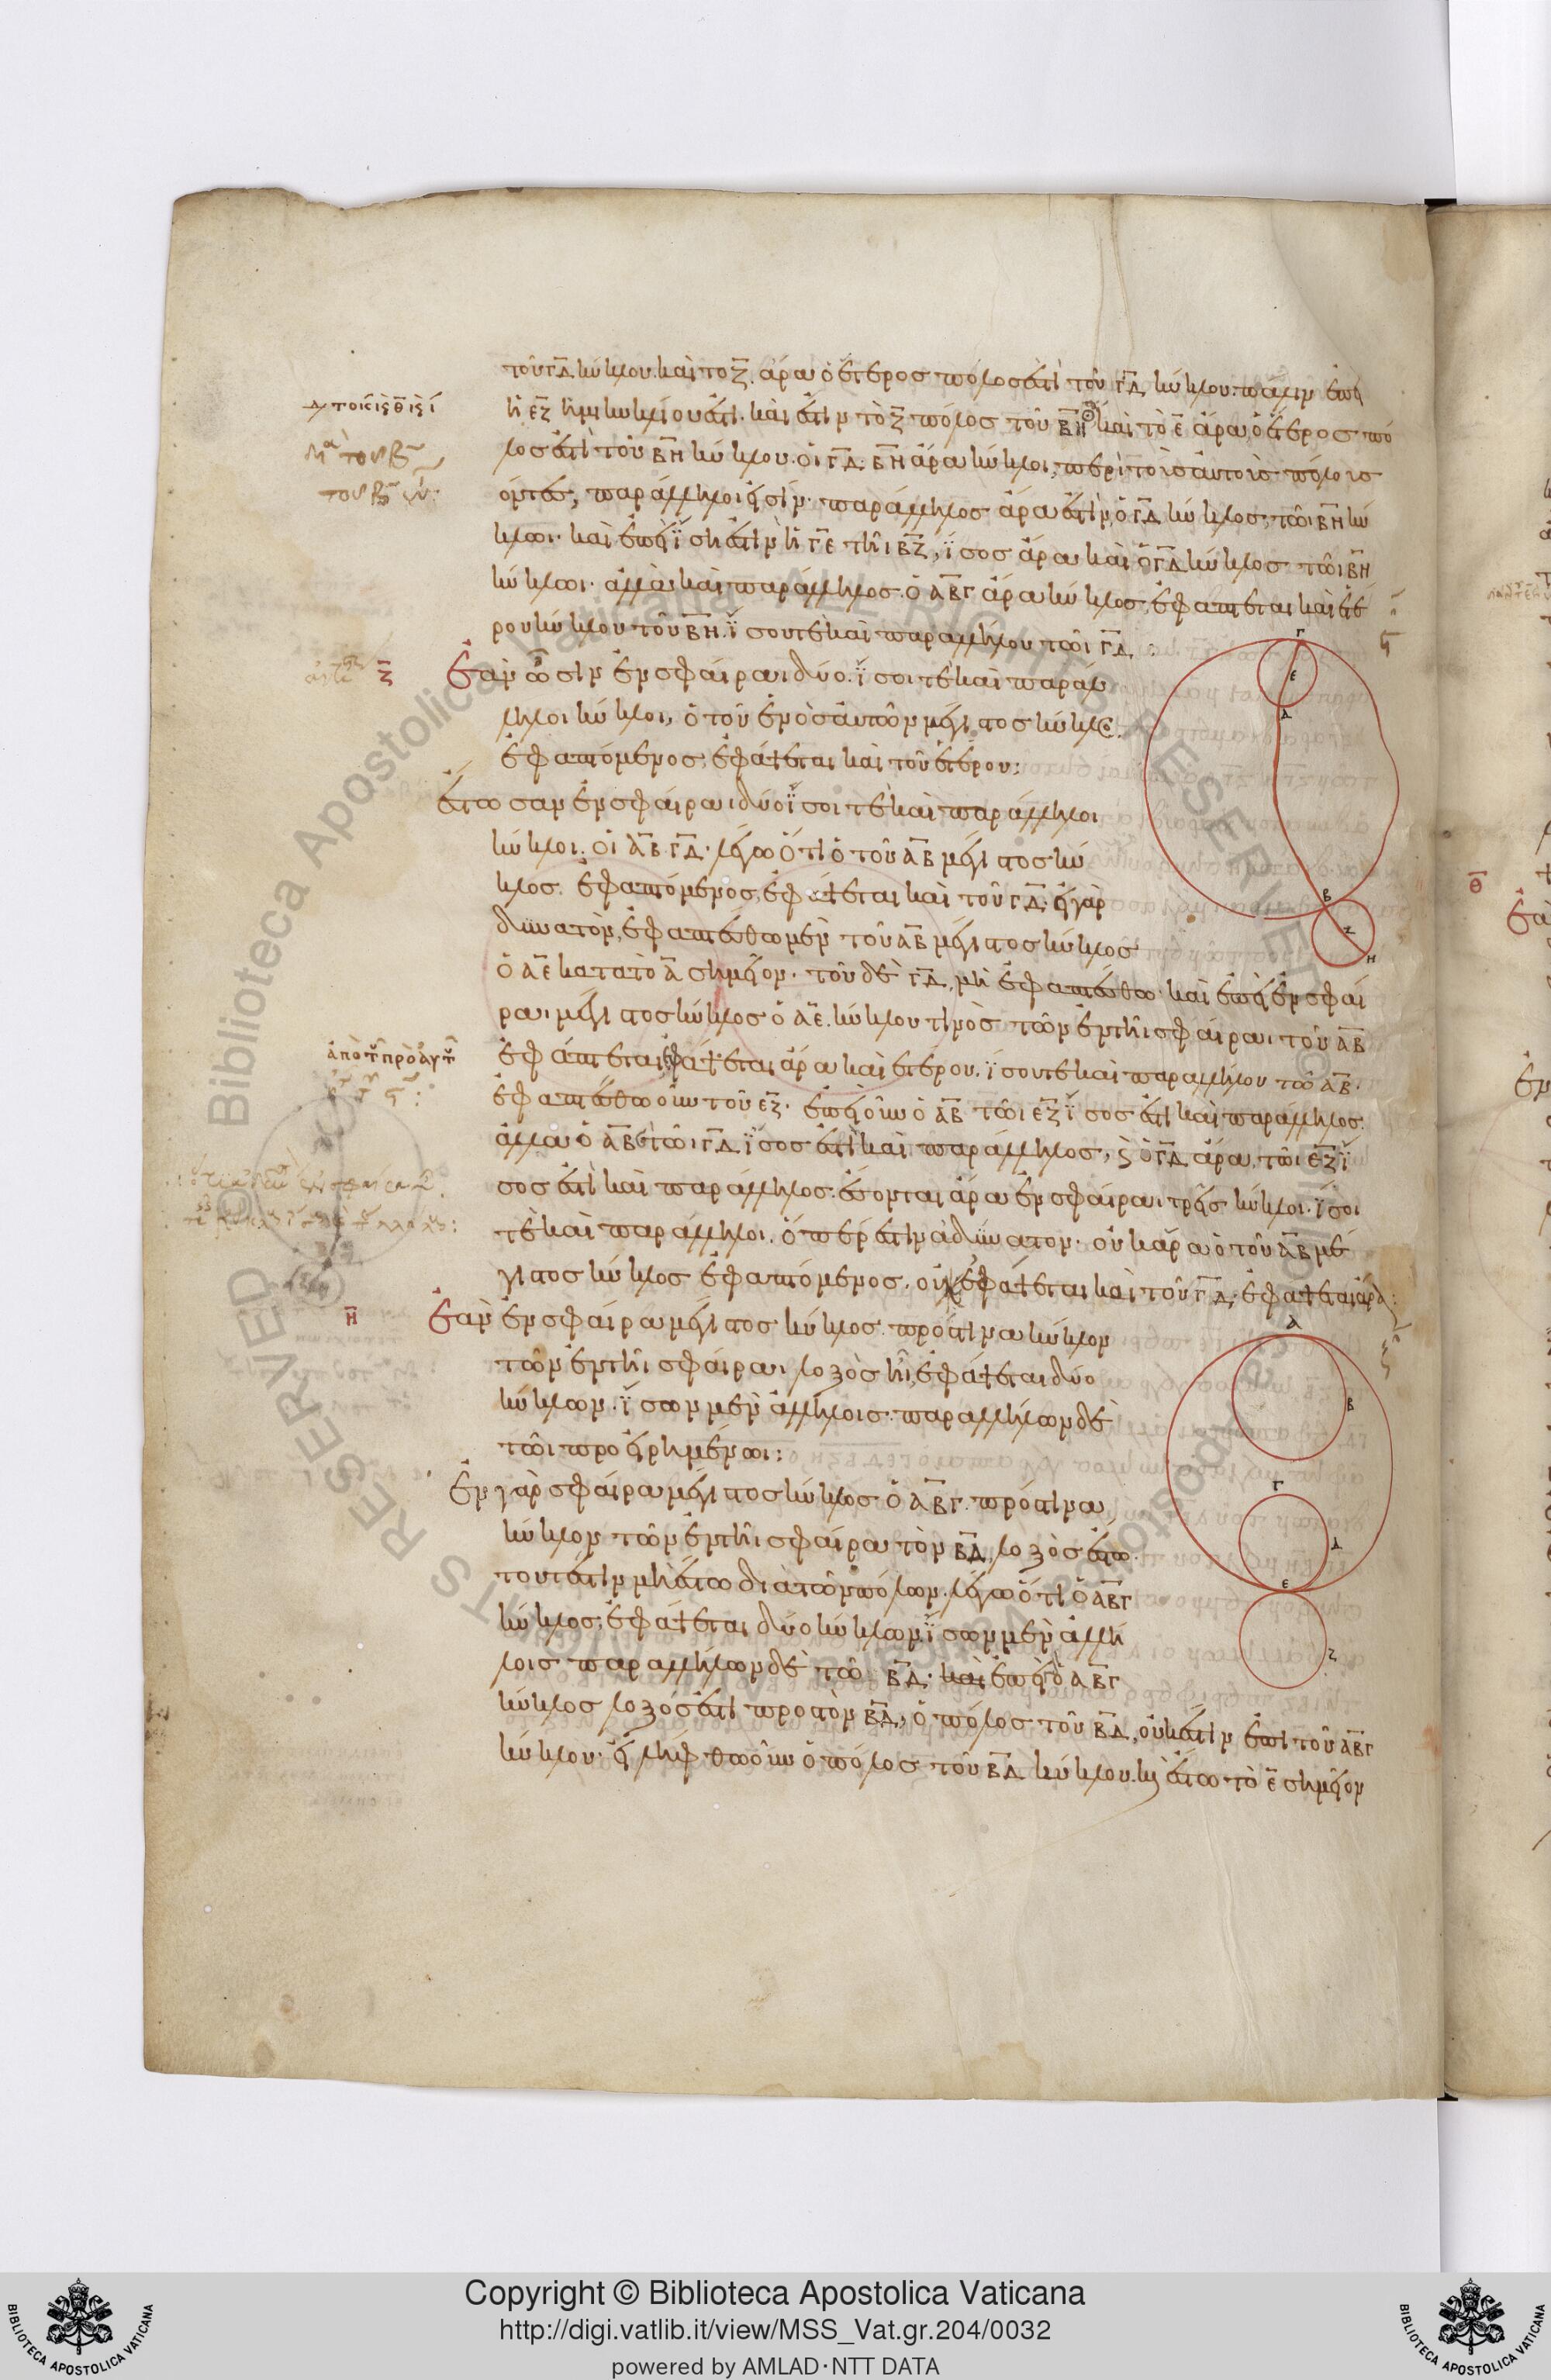 τοῦ ΓΔ κύκλου. καὶ τὸ Ζ ἄρα ὁ ἕτερος πόλος ἐστὶ τοῦ ΓΔ κύκλου. πάλιν ἐπεὶ
ἡ ΕΖ ἡμικυκλίου ἐστί. καὶ ἐστιν τὸ Ζ πόλος τοῦ ΒΗ καὶ τὸ Ε ἄρα ὁ ἕτερος πό
λος ἐστὶ τοῦ ΒΗ κύκλου. οἱ ΓΔ ΒΗ ἄρα κύκλοι, περὶ τοὺς αὐτοὺς πόλους
ὄντες, παράλληλοι εἰσίν. παράλληλος ἄρα ἐστὶν ὁ ΓΔ κύκλος, τῶι ΒΗ κύ
κλωι. καὶ ἐπεὶ ἴση ἐστὶν ἡ ΓΕ τῆι ΒΖ, ἴσος ἄρα καὶ ὁ ΓΔ κύκλος τῶι ΒΗ
κύκλωι. ἀλλὰ καὶ παράλληλος. ὁ ΑΒΓ ἄρα κύκλος, ἐφάπτεται καὶ ἑτέ
ρου κύκλου τοῦ ΒΗ. ἴσου τε καὶ παραλλήλου τῶι ΓΔ :
Ζ Ἐὰν ὦσιν ἐν σφαίραι δύο ἴσοι τε καὶ παράλ
ληλοι κύκλοι, ὁ τοῦ ἑνὸς αὐτῶν μέγιστος κύκλος
ἐφαπτόμενος, ἐφάψεται καὶ τοῦ ἑτέρου:
ἔστωσαν ἐν σφαίραι δύο ἴσοι τε καὶ παράλληλοι
κύκλοι. οἱ ΑΒ ΓΔ. λέγω ὅτι ὁ τοῦ ΑΒ μέγιστος κύ
κλος ἐφαπτόμενος, ἐφάψεται καὶ τοῦ ΓΔ. εἰ γὰρ
δυνατὸν, ἐφαπτέσθω μὲν τοῦ ΑΒ μέγιστος κύκλος
ὁ ΑΕ κατὰ τὸ Α σημεῖον. τοῦ δὲ ΓΔ, μὴ ἐφαπτέσθω. καὶ ἐπεὶ ἐν σφαί
ραι μέγιστος κύκλος ὁ ΑΕ. κύκλου τινὸς τῶν ἐν τῆι σφαίραι τοῦ ΑΒ
ἐφάπτεται, ἐφάψεται ἄρα καὶ ἑτέρου. ἴσου τε καὶ παραλλήλου τῶ ΑΒ.
ἐφαπτέσθω οὖν τοῦ ΕΖ. ἐπεὶ οὖν ὁ ΑΒ τῶι ΕΖ ἴσος ἐστὶ καὶ παράλληλος.
ἀλλὰ ὁ ΑΒ τῶι ΓΔ ἴσος ἐστὶ καὶ παράλληλος, ὁ ΓΔ ἄρα τῶι ΕΖ ἴ
σος ἐστὶ καὶ παράλληλος. ἔσονται ἄρα ἐν σφαίραι τρεῖς κύκλοι. ἴσοι
τὲ καὶ παράλληλοι. ὅπερ ἐστὶν ἀδύνατον. οὐκ ἄρα ὁ τοῦ ΑΒ μέ
γιστος κύκλος ἐφαπτόμενος. οὐκ ἐφάψεται καὶ τοῦ ΓΔ. ἐφάψεται ἄρα:
Η Ἐὰν ἐν σφαίρα μέγιστος κύκλος πρός τινα κύκλον
τῶν ἐν τῆι σφαίραι λοξὸς ἦι, ἐφάψεται δύο
κύκλων. ἴσων μὲν ἀλλήλοις. παραλλήλων δὲ
τῶι προειρημένωι:
Ἐν γὰρ σφαίρα μέγιστος κύκλος ὁ ΑΒΓ. πρός τινα
κύκλον τῶν ἐν τῆι σφαίρα τὸν ΒΔ, λοξὸς ἔστω
τουτέστιν μὴ ἔστω διὰ τῶν πόλων. λέγω ὅτι ὁ ΑΒΓ
κύκλος, ἐφάψεται δύο κύκλων ἴσων μὲν ἀλλή
λοις παραλλήλων δὲ τῶ ΒΔ. καὶ ἐπεὶ ὁ ΑΒΓ
κύκλος λοξός ἐστὶ πρὸς τὸν ΒΔ, ὁ πόλος τοῦ ΒΔ, οὐκ ἔστιν ἐπὶ τοῦ ΑΒΓ
κύκλου. εἰλήφθω οὖν ὁ πόλος τοῦ ΒΔ κύκλου. καὶ ἔστω τὸ Ε σημεῖον
Γ
Ε
Δ
Β
Ζ
Η
Α
Β
Γ
Δ
Ε
Ζ
Θ
Copyright © Biblioteca Apostolica Vaticana
http://digi.vatlib.it/view/MSS_Vat.gr.204/0032
powered by AMLAD·NTT DATA
BIBLIOTECA APOSTOLICA VATICANA
BIBLIOTECA APOSTOLICA VATICANA